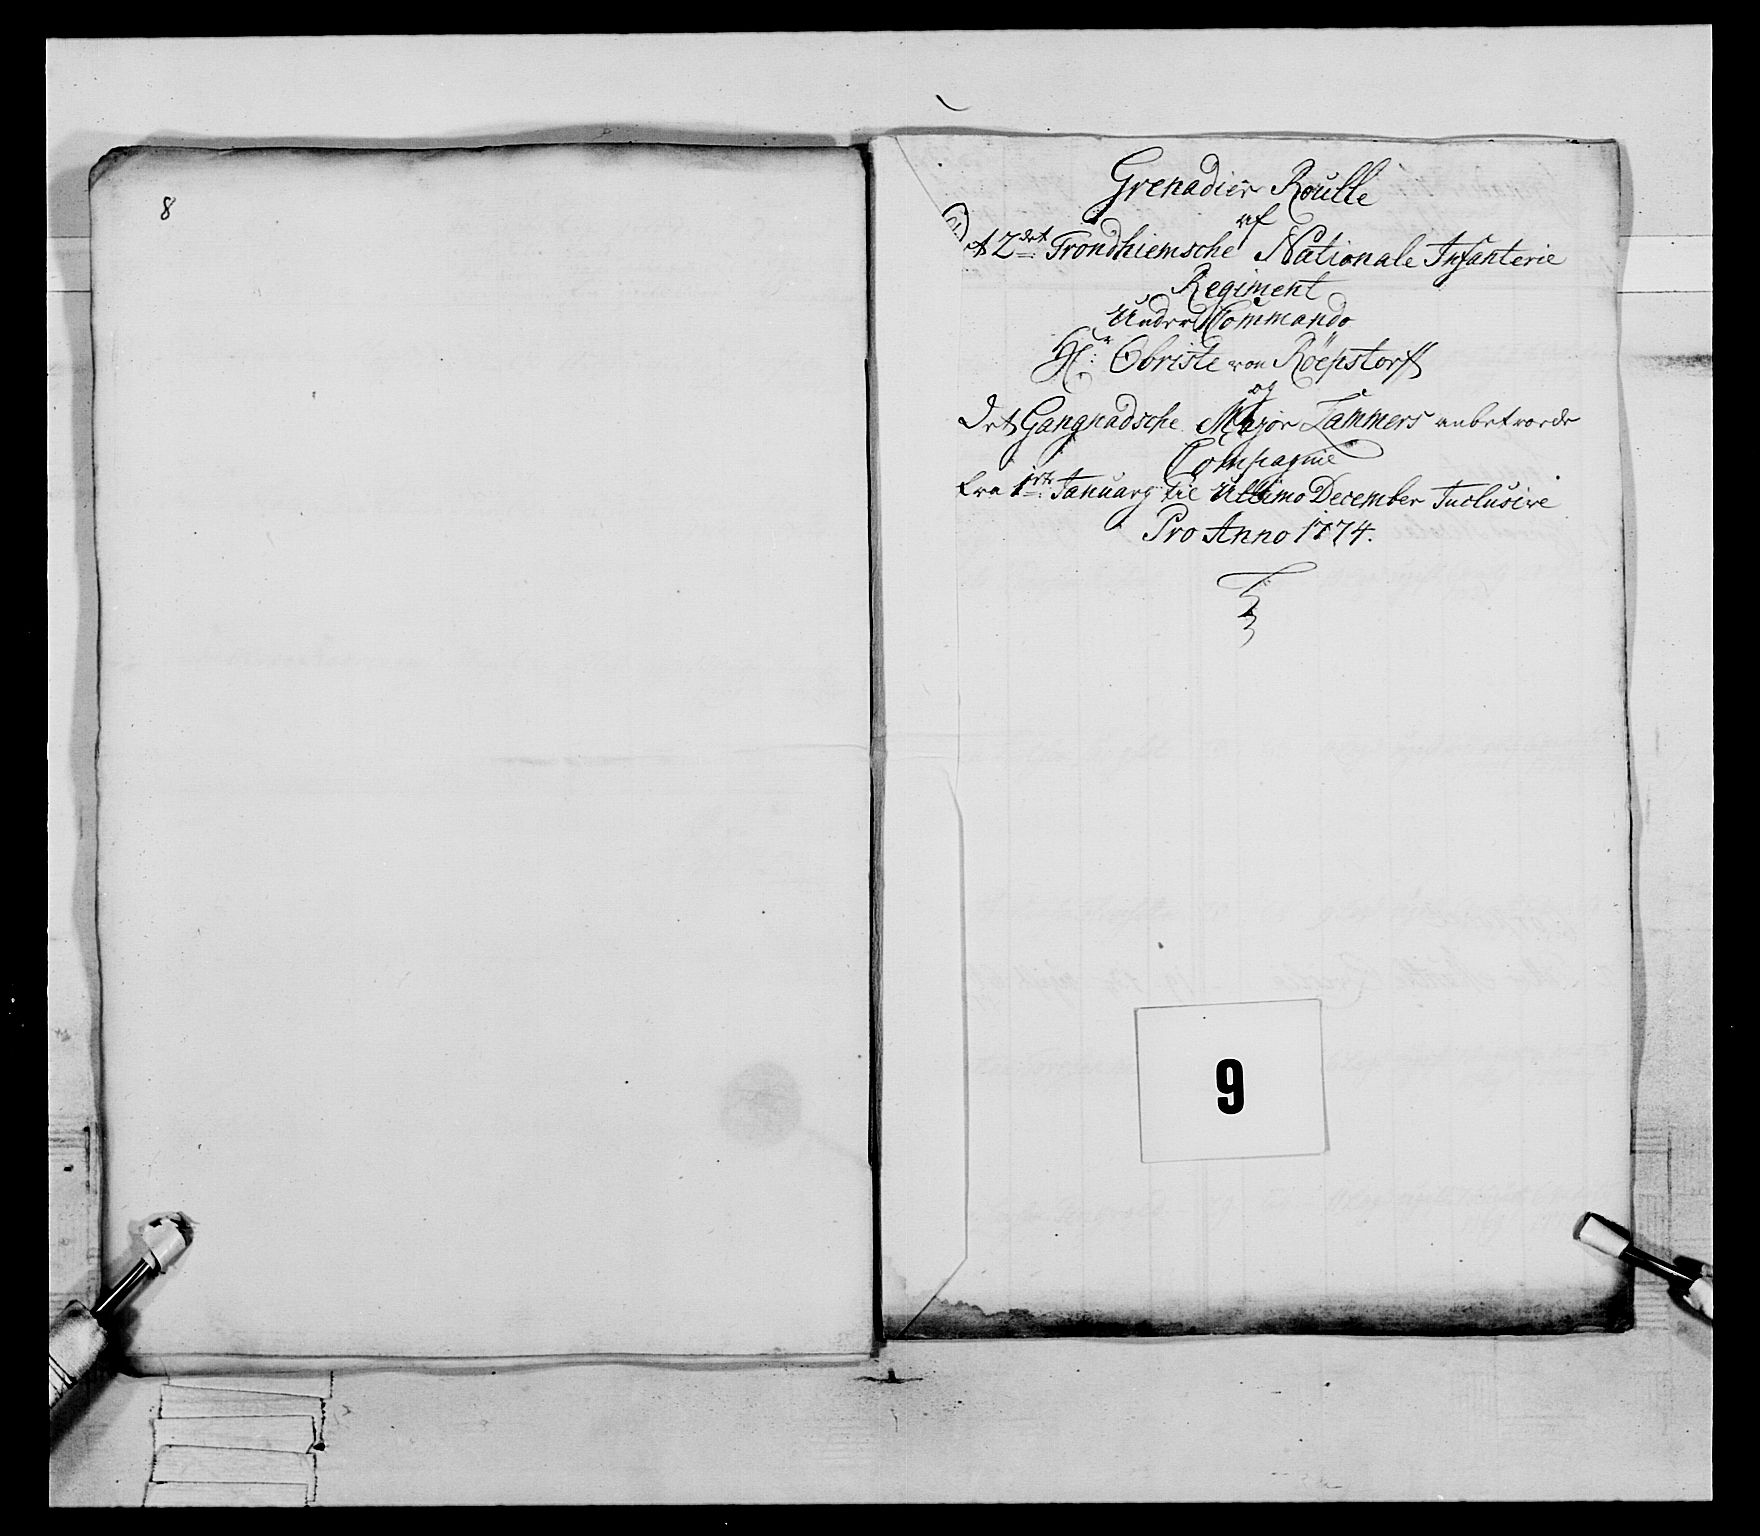 8
Grenadier Roulle
af
det 2det Trondhiemsche Nationale Infanterie
Regiment
Under Commando
Hr: Obriste von Röepstorff
og
Det Gangnadsche Major Lammers anbetroede
Compagnie
fra 1ste January til Ultimo December Inclusive
Pro Anno 1774.
9